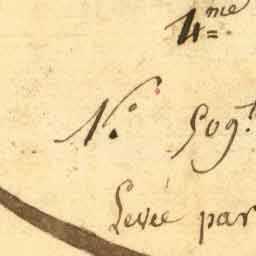 4me
N. Sogt.
Levée par